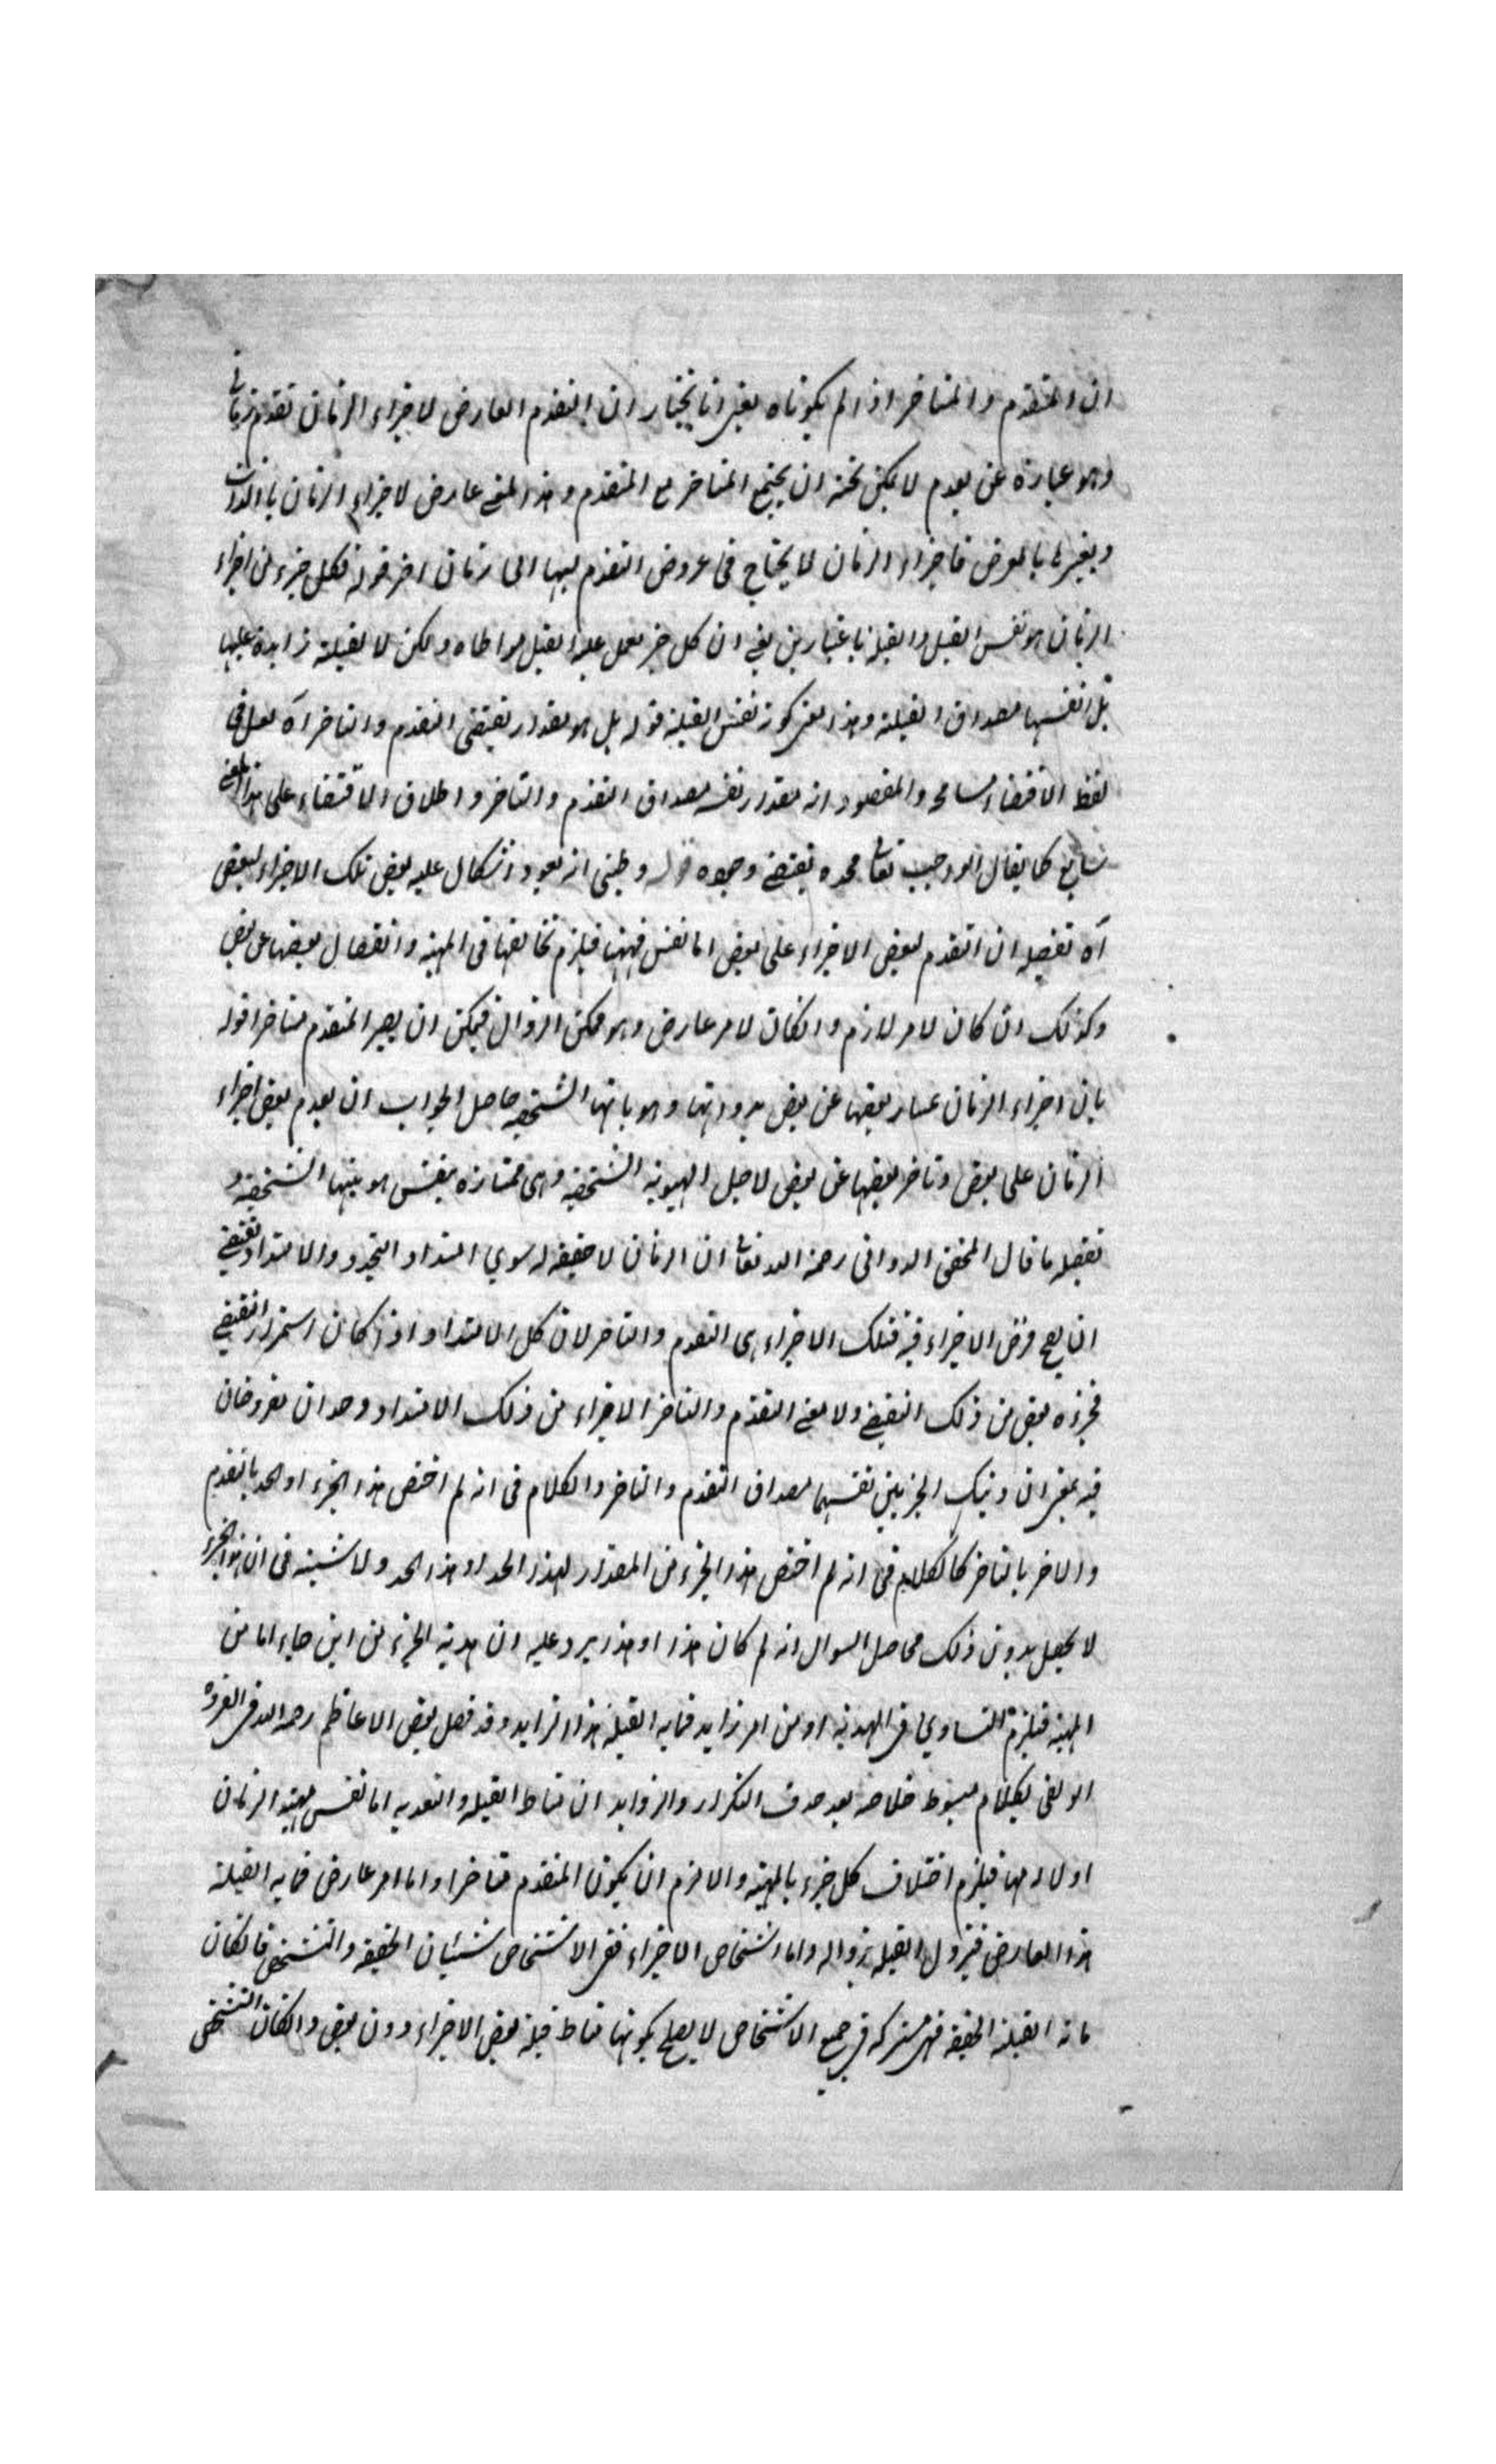 ان المتقدم والمتاخر اذا لم يكوناه يعنى انا نختار ان التقدم العارض لاجزاء الزمان تقدم زمانى
وهو عبارة عن تقدم لا يمكن ان يجتمع المتاخر مع المتقدم وهذا المعنى عارض لاجزاء الزمان بالذات
وبغيرها بالعرض فاجزاء الزمان لا يحتاج فى عروض التقدم اليها الى زمان اخر قوله فكل جزء من اجزاء
الزمان هو نفس القبل والقبلية باعتبارين يعنى ان كل جزء يحمل عليه القبل مواطاه ولكن لا لقبلية زايدة عليها
بل انفسها مصداق القبلية وهذا معنى كونه نفس القبلية قوله بل هو مقدار يقتضى التقدم والتاخر آه لعل فى
لفظ الاقتضاء مسامحه والمقصود انه مقدار نفسه مصداق التقدم والتاخر واطلاق الاقتضاء على هذا المعنى
شايع كما يقال الواجب تعا مجده يقتضى وجوده قوله وظنى انه يعود اشكال عليه بعض تلك الاجزاء لبعض
آه تفصيله ان التقدم لبعض الاجزاء على بعض اما لنفس مهيتها فيلزم تخالفها فى المهية وانفصال بعضها عن بعض
وكذلك ان كان لامر لازم وان كان لامر عارض وهو ممكن الزوال فيمكن ان يصير المتقدم متاخرا قوله
بان اجزاء الزمان بعضها عن بعض بذواتها وهوياتها الشخصية حاصل الجواب ان تقدم بعض اجزاء
الزمان على بعض وتاخر بعضها عن بعض لاجل الهوية الشخصية وهى ممتازه بنفس هويتها الشخصية و
تفصيله ما قال المحقق الدوانى رحمه الله تعا ان الزمان لا حقيقة له سوى امتداد التجدد والامتداد يقتضى
ان يصح فرض الاجزاء فيه فتلك الاجزاء هى التقدم والتاخر لان كل الامتداد اذا كان استمرار التقضى
فجزؤه بعض من ذلك التقضى ولا معنى التقدم والتاخر الاجزاء من ذلك الامتداد وحدان مفروضان
فيه بمعنى ان ذينك الجزئين نفسهما مصداق التقدم والتاخر والكلام فى انه لم اختص هذا الجزء او الحد بالتقدم
والاخر بالتاخر كالكلام فى انه لم اختص هذا الجزء من المقدار لهذا الحد او هذا الحد ولا شبهة فى ان هذا الجزء
لا يحصل بدون ذلك محاصل السوال انه لم كان هذا او هذا يرد عليه ان هذية الجزء من اين جاء اما من
المهية فيلزم التساوى فى الهذية او من امر زايد فما به القبلية هذا الزايد وقد فصل بعض الاعاظم رحمه الله فى العروة
الوثقى بكلام مبسوط خلاصه بعد حذف التكرار والزوايد ان مناط القبلية والبعديه اما نفس مهية الزمان
او لازمها فيلزم اختلاف كل جزء بالمهية والا لزم ان يكون المتقدم متاخرا واما امر عارض فما به القبلية
هذا العارض فيزول القبلية بزواله واما اشخاص الاجزاء ففى الاشخاص شيئان الحقيقة والتشخص فان كان
ما به القبلية الحقيقة فهى مشتركه فى جميع الاشخاص لا يصلح بكونها مناط قبلية بعض الاجزاء دون بعض وان كان التشخص